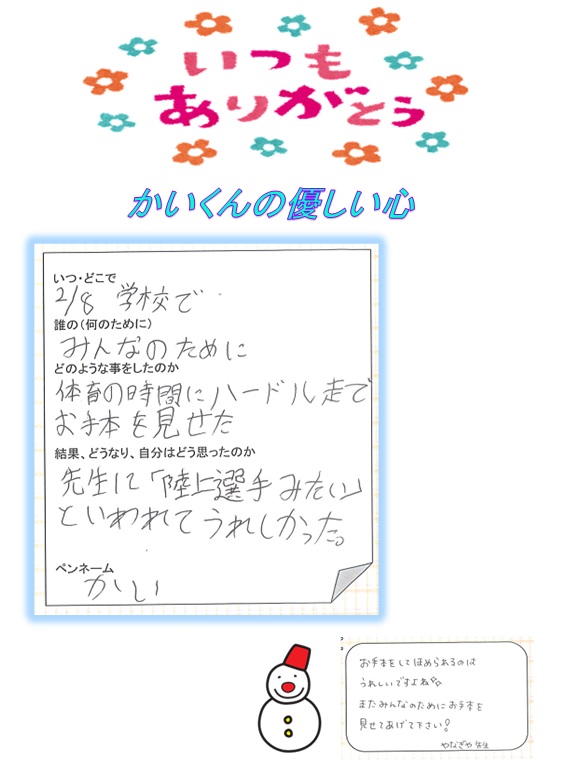 いつも
ありがとう
かいくんの優しい心
いつ・どこで
2/8 学校で
誰の(何のために)
みんなのために
どのような事をしたのか
体育の時間にハードル走で
お手本を見せた
結果、どうなり、自分はどう思ったのか
先生に「陸上選手みたい」
といわれてうれしかった。
ペンネーム
かい
お手本をしてほめられるのは
うれしいですよね
またみんなのためにお手本を
見せてあげて下さい!
やなぎや先生